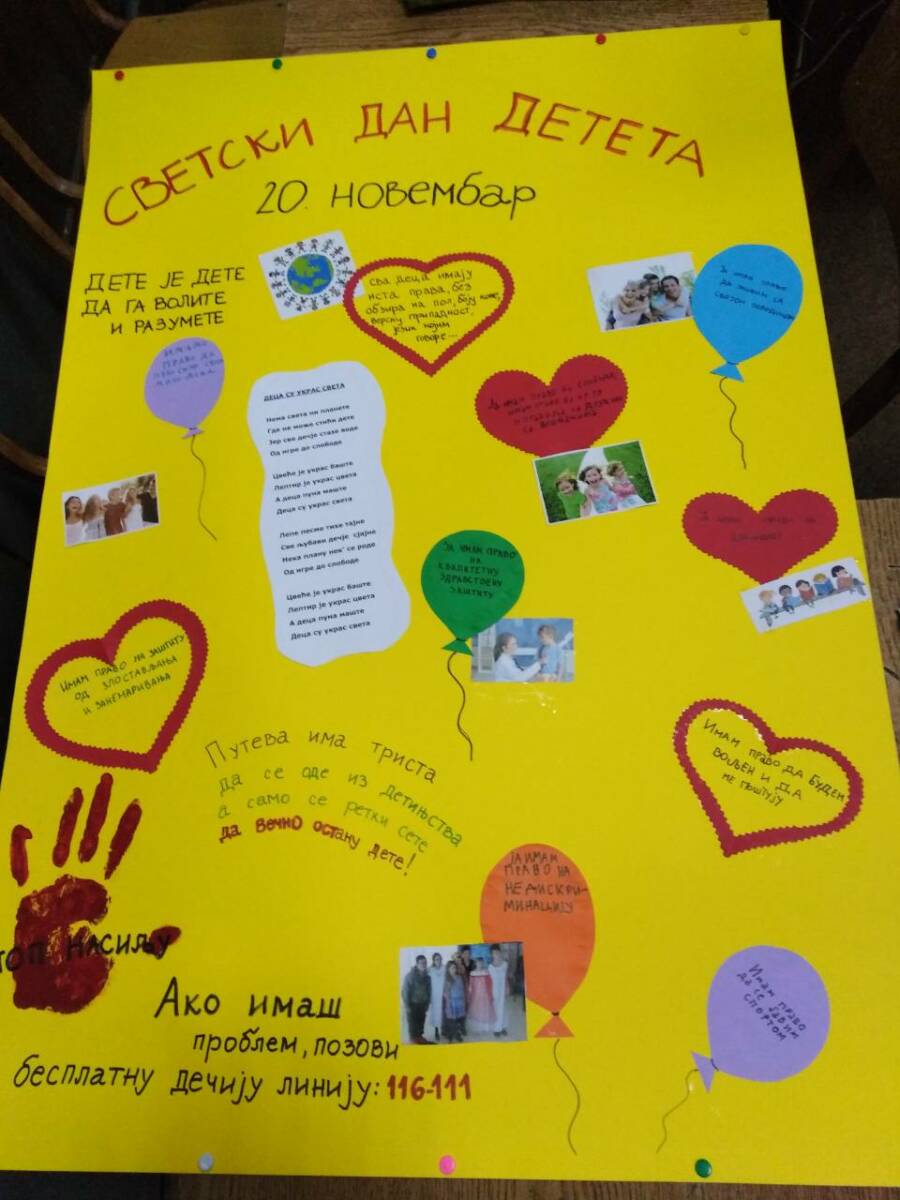 СВЕТСКИ ДАН ДЕТЕТА
20. новембар
ДЕТЕ ЈЕ ДЕТЕ
ДА ГА ВОЛИТЕ
И РАЗУМЕТЕ
СВА ДЕЦА ИМАЈУ
ИСТА ПРАВА, БЕЗ
ОБЗИРА НА ПОЛ, БОЈУ КОЖЕ,
ВЕРСКУ ПРИПАДНОСТ,
ЈЕЗИК КОЈИМ
ГОВОРЕ...
ЈА ИМАМ ПРАВО
ДА ЖИВИМ СА
СВОЈОМ ПОРОДИЦОМ
ПРАВО ДА
ДЕЦА СУ УКРАС СВЕТА
Нема света ни планете
Где не може стићи дете
Јер све дечје стазе воде
Од игре до слободе
Цвеће је украс баште
Лептир је украс цвета
А деца пуна маште
Деца су украс света
Лепе песме тихе тајне
Све љубави дечје сјајне
Нека плану нек' се роде
Од игре до слободе
Цвеће је украс баште
Лептир је украс цвета
А деца пуна маште
Деца су украс света
ЈА ИМАМ ПРАВО
ЈА ИМАМ ПРАВО
НА
КВАЛИТЕТНУ
ЗДРАВСТВЕНУ
ЗАШТИТУ
ЈА ИМАМ ПРАВО НА
ИМАМ ПРАВО НА ЗАШТИТУ
ОД ЗЛОСТАВЉАЊА
И ЗАНЕМАРИВАЊА
ПУТЕВА ИМА ТРИСТА
ДА СЕ ОДЕ ИЗ ДЕТИЊСТВА
А САМО СЕ РЕТКИ СЕТЕ
ДА ВЕЧНО ОСТАНУ ДЕТЕ!
ИМАМ ПРАВО ДА БУДЕМ
ВОЉЕН И ДА
МЕ ПОШТУЈУ
ЈА ИМАМ
ПРАВО НА
НЕДИСКРИ-
МИНАЦИЈУ
ТОП НАСИЉУ
Имам право
да се бавим
спортом
Ако имаш
проблем, позови
бесплатну дечију линију: 116-111